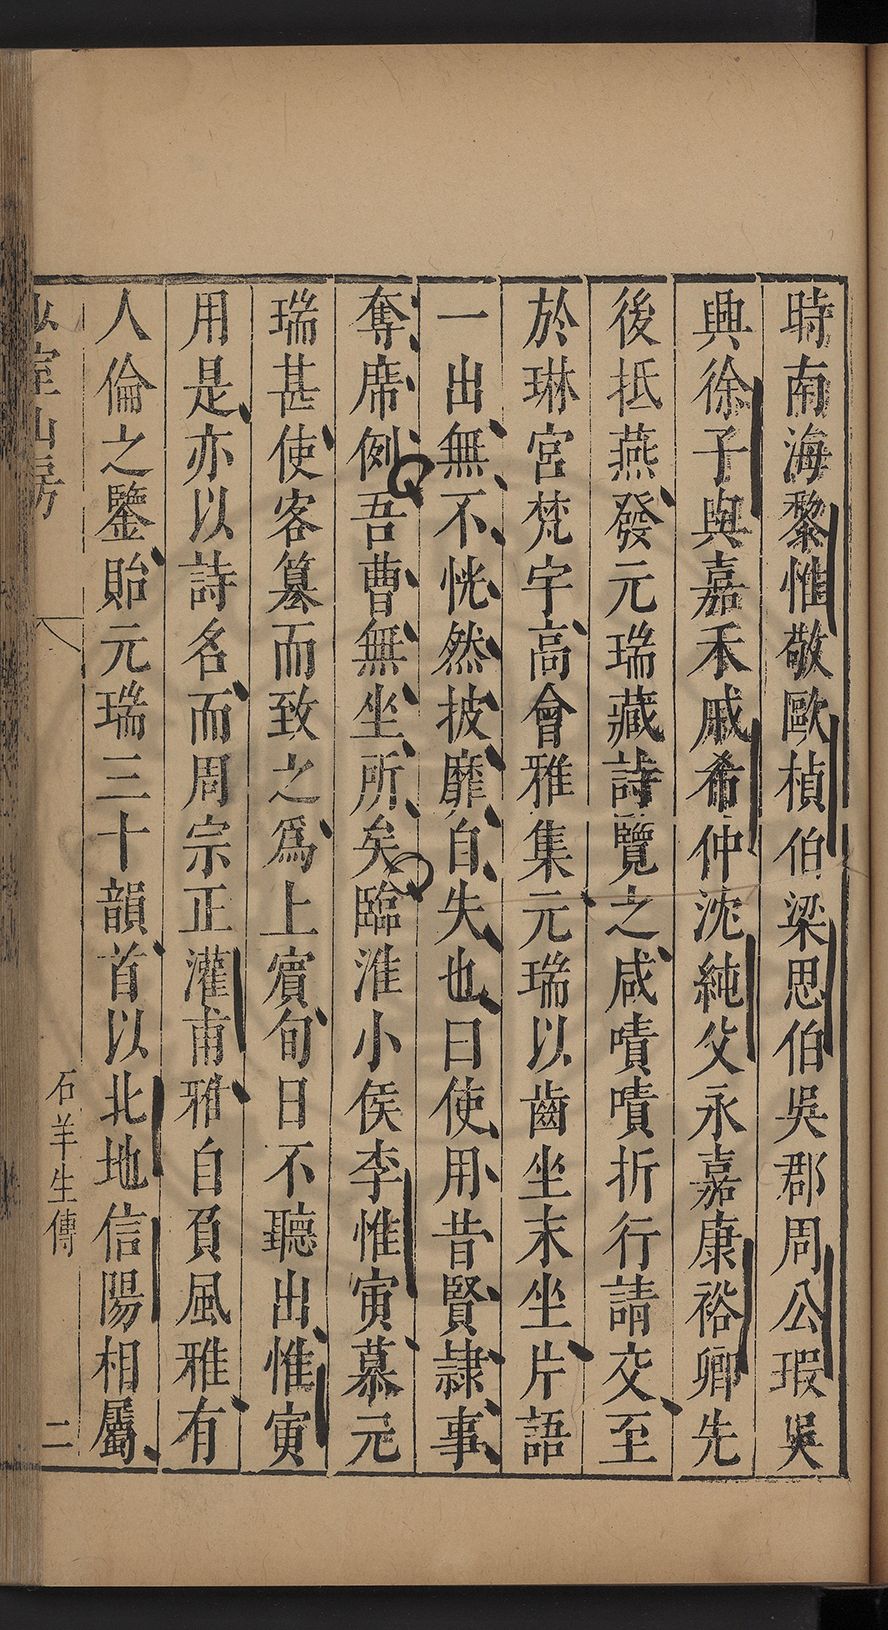 時南海黎惟敬歐楨伯梁思伯吳郡周公瑕吳
興徐子與嘉禾戚希仲沈純父永嘉康裕卿先
後抵燕發元瑞藏詩覽之咸嘖嘖折行請交至
於琳宮梵宇高會雅集元瑞以齒坐末坐片語
一出無不恍然披靡自失也曰使用昔賢隷事
奪席例吾曹無坐所矣臨淮小侯李惟寅慕元
瑞甚使客篡而致之爲上賓旬日不聽出惟寅
用是亦以詩名而周宗正灌甫雅自負風雅有
人倫之鑒貽元瑞三十韻首以北地信陽相屬
室山房
石羊生傳
二